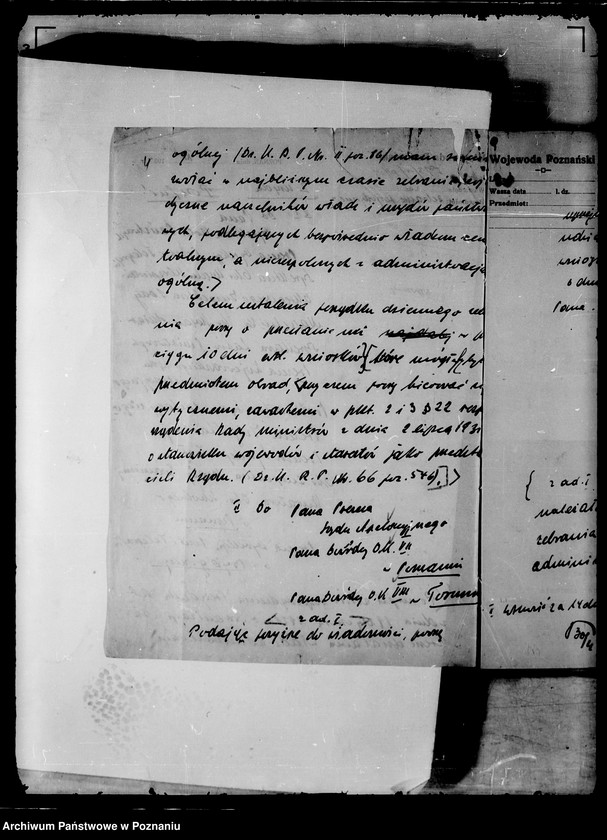 ogólnej (Dz. U. R. P. Nr. II poz. 86) mam
zwołać w najbliższym czasie zebranie
dyczne naczelników władz i urzędów państw
nych, podlegających bezpośrednio władzom cen
tralnym, a niezespolonych z administracją
ogólną.>
Celem ustalenia porządku dziennego ze
nia proszę o nadesłanie mi w
ciągu 10 dni wniosków, które mogłyby być
przedmiotem obrad, przyczem proszę kierować się
wytycznemi, zawartemi w pkt. 2 i 3 § 22 rozp
rządzenia Rady Ministrów z dnia 2 lipca 193
o stanowisku wojewodów i starostów jako przedst
cieli Rządu. (Dz. U. R. P. Nr. 66 poz. 546).]>
II Do Pana Prezesa
Sądu Apelacyjnego
Pana Dowódcy O.K. VII
w Poznaniu
Pana Dowódcy O.K. VIII w Toruniu
z ad. I
Podając powyższe do wiadomości, proszę
Wojewoda Poznański
Wasza data
l. dz.
Przedmiot:
wnios
o dni
Pana
{ z ad. I
należał
zebrania
admini
30/4
Archiwum Państwowe w Poznaniu